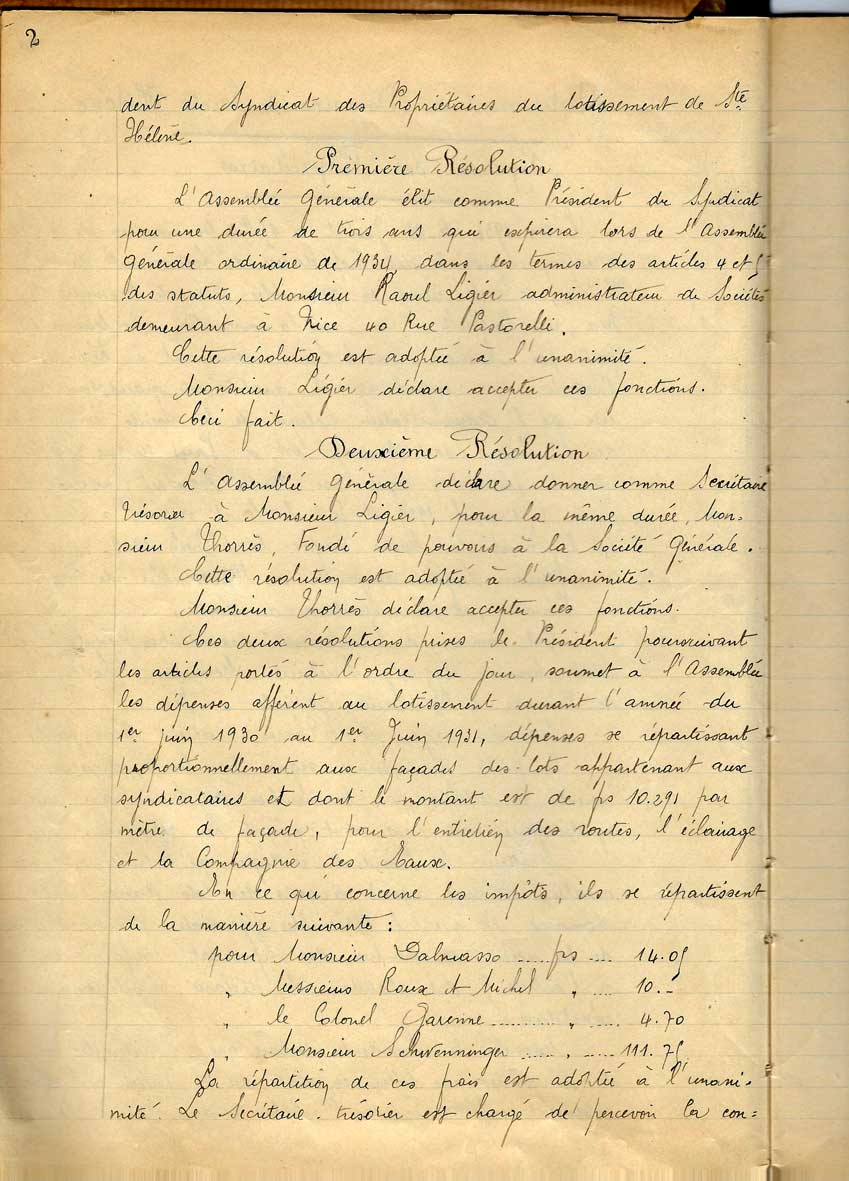 2
dent du Syndicat des Propriétaires du lotissement de Ste
Hélène.
Première Résolution
L'Assemblée Générale élit comme Président du Syndicat
pour une durée de trois ans qui expirera lors de l'Assemblée
Générale ordinaire de 1934, dans les termes des articles 4 et 5
des statuts, Monsieur Raoul Ligier administrateur de Sociétés
demeurant à Nice 40 Rue Pastorelli.
Cette résolution est adoptée à l'unanimité.
Monsieur Ligier déclare accepter ces fonctions.
Ceci fait.
Deuxième Résolution
L'Assemblée Générale déclare donner comme Secrétaire
trésorier à Monsieur Ligier, pour la même durée, Mon-
sieur Thorrès, Fondé de pouvoirs à la Société Générale.
Cette résolution est adoptée à l'unanimité.
Monsieur Thorrès déclare accepter ces fonctions.
Ces deux résolutions prises le Président poursuivant
les articles portés à l'ordre du jour, soumet à l'Assemblée
les dépenses afférent au lotissement durant l'année du
1er juin 1930 au 1er Juin 1931, dépenses se répartissant
proportionnellement aux façades des lots appartenant aux
syndicataires et dont le montant est de frs 10.291 par
mètre de façade, pour l'entretien des routes, l'éclairage
et la Compagnie des Eaux.
En ce qui concerne les impôts, ils se répartissent
de la manière suivante :
pour Monsieur Dalmasso ..... frs .... 14.05
" Messieurs Roux et Michel " .... 10.-
" le Colonel Garenne .......... " .... 4.70
" Monsieur Schwenninger ..... " ..... 111.75
La répartition de ces frais est adoptée à l'unani-
mité. Le Secrétaire-trésorier est chargé de percevoir la con=